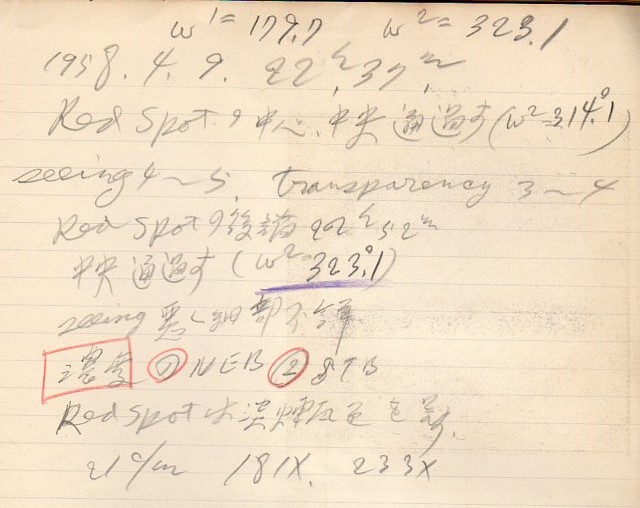 ω¹=179.7 ω²=323.1
1958.4.9. 22h37m
Red Spotノ中心、中央通過す(ω²=314°.1)
seeing 4～5, transparency 3～4
Red Spotノ後端 22h52m
中央通過す (ω²=323°.1)
seeing 悪く細部不詳
濃度 ① NEB ② STB
Red Spot 淡
21cm 181X, 233X